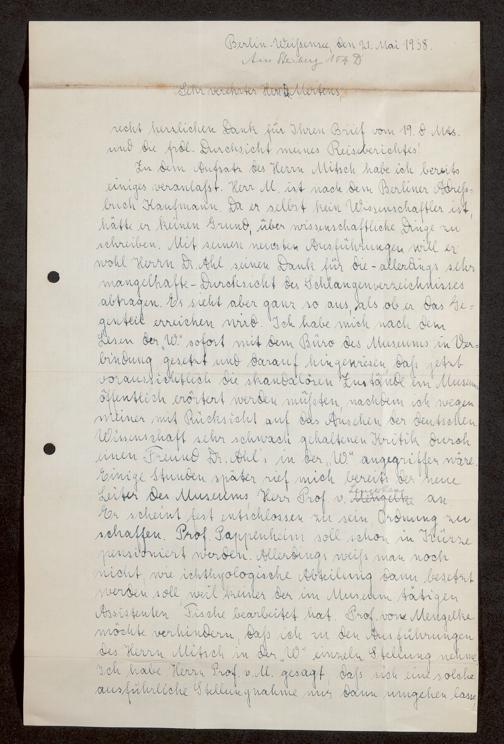 Berlin-Weißensee, den 21. Mai 1938.
Am Steinberg 104 D
Sehr verehrter Herr Mertens,
recht herzlichen Dank für Ihren Brief vom 19. d. Mts.
und die frdl. Durchsicht meines Reiseberichtes!
Zu dem Aufsatz des Herrn Mitsch habe ich bereits
einiges veranlaßt. Herr M. ist nach dem Berliner Adreß-
buch Kaufmann. Da er selbst kein Wissenschaftler ist,
hätte er keinen Grund, über wissenschaftliche Dinge zu
schreiben. Mit seinen neuesten Ausführungen will er
wohl Herrn Dr. Ahl seinen Dank für die - allerdings sehr
mangelhafte - Durchsicht des Schlangenverzeichnisses
abtragen. Es sieht aber ganz so aus, als ob er das Ge-
genteil erreichen wird. Ich habe mich nach dem
Lesen der „W" sofort mit dem Büro des Museums in Ver-
bindung gesetzt und darauf hingewiesen, daß jetzt
voraussichtlich die skandalösen Zustände im Museum
öffentlich erörtert werden müßten, nachdem ich wegen
meiner mit Rücksicht auf das Ansehen der deutschen
Wissenschaft sehr schwach gehaltenen Kritik durch
einen Freund Dr. Ahl's in der „W." angegriffen wäre.
Einige Stunden später rief mich bereits der neue
Leiter des Museums, Herr Prof. v. an.
Er scheint fest entschlossen zu sein, Ordnung zu
schaffen. Prof. Pappenheim soll schon in Kürze
pensioniert werden. Allerdings weiß man noch
nicht, wie ichthyologische Abteilung dann besetzt
werden soll, weil keiner der im Museum tätigen
Assistenten Fische bearbeitet hat. Prof. von Mengelke
möchte verhindern, daß ich zu den Ausführungen
des Herrn Mitsch in der „W" einzeln Stellung nehme.
Ich habe Herrn Prof. v. M. gesagt, daß sich eine solche
ausführliche Stellungnahme nur dann umgehen lasse